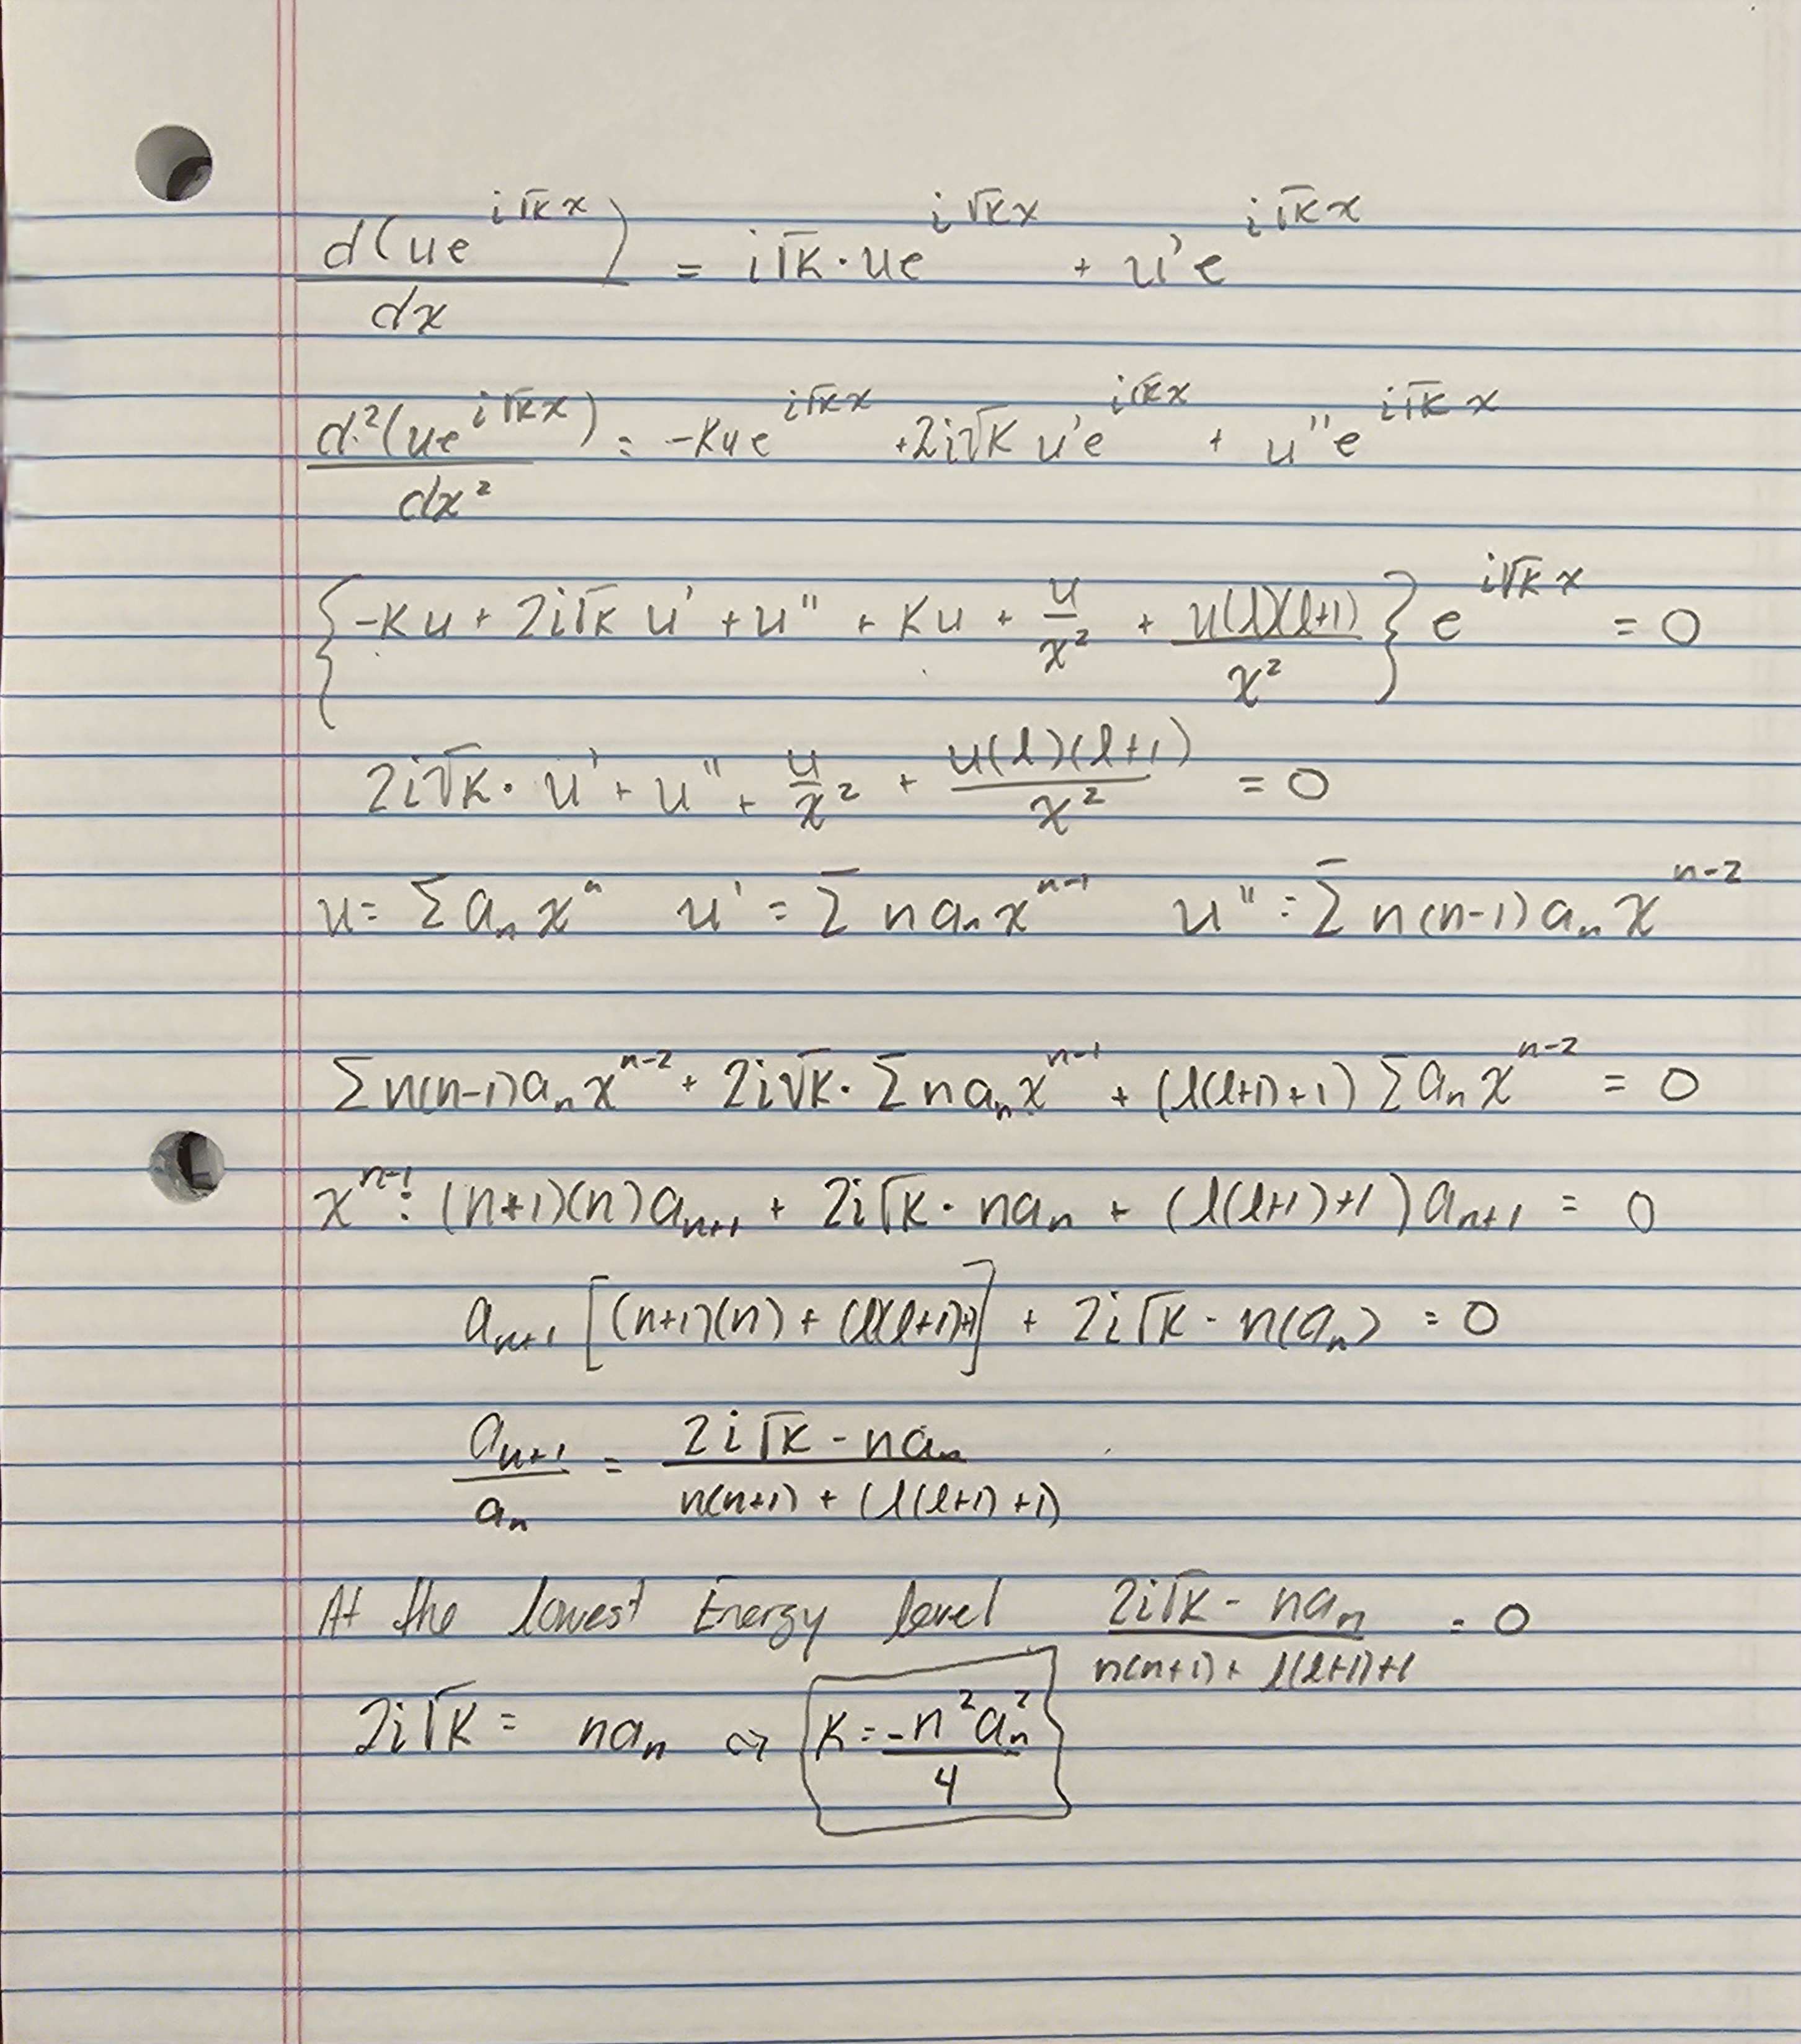 d(ue^{i√K x})/dx = i√K · ue^{i√K x} + u'e^{i√K x}
d²(ue^{i√K x})/dx² = -Kue^{i√K x} + 2i√K u'e^{i√K x} + u''e^{i√K x}
{-Ku + 2i√K u' + u'' + Ku + u/x² + u(l)(l+1)/x²} e^{i√K x} = 0
2i√K · u' + u'' + u/x² + u(l)(l+1)/x² = 0
u = Σ aₙ xⁿ u' = Σ n aₙ x^{n-1} u'' = Σ n(n-1) aₙ x^{n-2}
Σ n(n-1) aₙ x^{n-2} + 2i√K · Σ n aₙ x^{n-1} + (l(l+1)+1) Σ aₙ x^{n-2} = 0
x^{n-1}: (n+1)(n) a_{n+1} + 2i√K · n aₙ + (l(l+1)+1) a_{n+1} = 0
a_{n+1} [(n+1)(n) + (l(l+1)+1] + 2i√K - n(aₙ) = 0
a_{n+1}/aₙ = (2i√K - n aₙ)/(n(n+1) + (l(l+1)+1))
At the lowest Energy level (2i√K - n aₙ)/(n(n+1) + l(l+1)+1) = 0
2i√K = n aₙ => K = -n² aₙ²/4